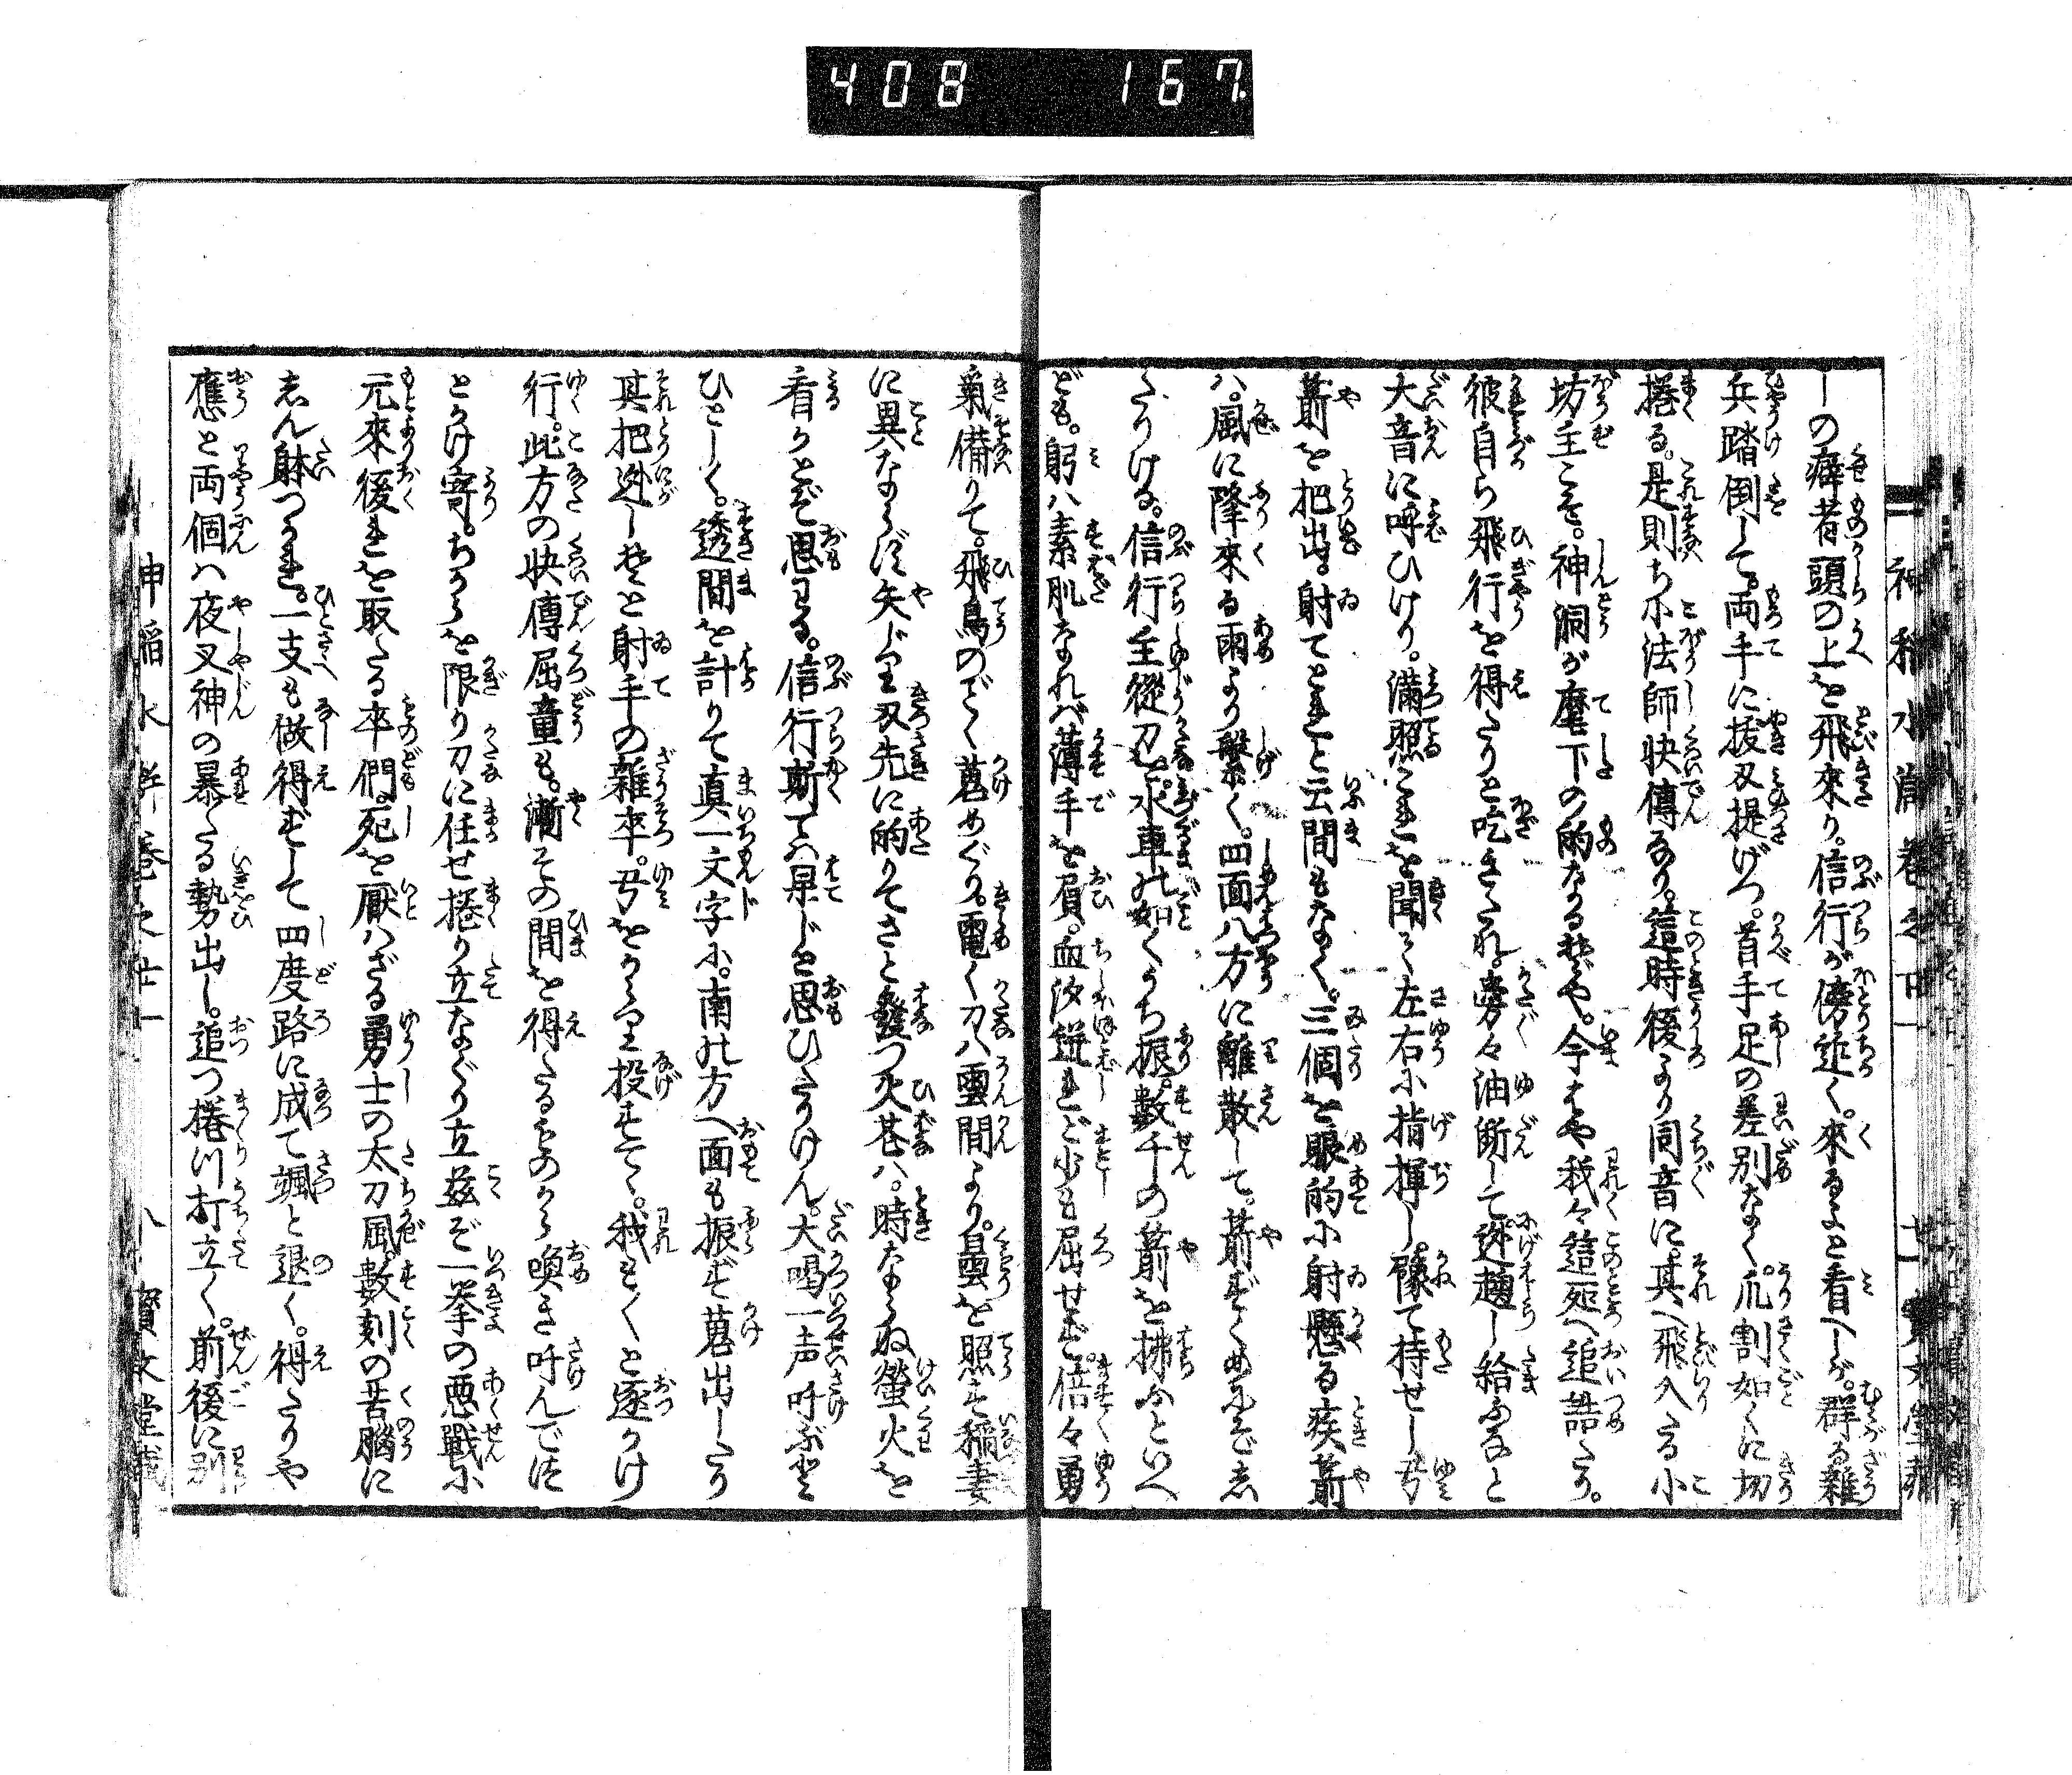 408 167
しの癖者頭の上を飛來り。信行が傍近く。來るよと看へしが。群る雜
兵踏倒して。両手に抜刄提げつ。首手足の差別なく。爪割如くに切
捲る。是則ち小法師快傳なり。這時後より同音に。其へ飛入たる小
坊主こそ。神洞が麾下の的なるぞや。今はや我々這処へ追詰たり。
彼自ら飛行を得たりと吃きたれ。旁々油断して迯趨し給ふなと
大音に呼ひけり。滿照これを聞て左右に指揮し。豫て持せし弓
箭を把出。射てとれと云間もなく。三個を眼的に射懸る疾箭
ハ。風に降來る雨より繁く。四面八方に離散して。箭ぶすくめにぞし
たりける。信行主從刀を。水車の如くうち振。數千の箭を拂ふといへ
ども。躬ハ素肌なれバ薄手を負。血汐迸れど少も屈せず。倍々勇
氣備りて。飛鳥のごく蒐めぐり。電く刀ハ雲間より。曇を照す稲妻
に異ならず矢ぶ里刄先に的りてさと發つ火花ハ。時ならぬ螢火を
看るとぞ思はる。信行斯てハ果じと思ひたりけん。大喝一声呼ぶと
ひとしく。透間を計りて真一文字に。南の方へ面も振ず蒐出したり
其把迯しそと射手の雜卒。弓をからり投すて。我もくと逐かけ
行。此方の快傳屈童も。漸その間を得たるものから喚き呌んで追
とかけ寄。ちからを限り刀に任せ捲り立なぐり立茲ぞ一挙の悪戰に
元來後れを取たる卒們。死を厭ハざる勇士の太刀風。數刻の苦脳に
しん躰つかれ。一支も做得ずして四度路に成て颯と退く。得たりや
應と両個ハ夜叉神の暴たる勢出し。追つ捲りつ打立く。前後に別
神稲水滸巻之廿一 八 寶文堂藏